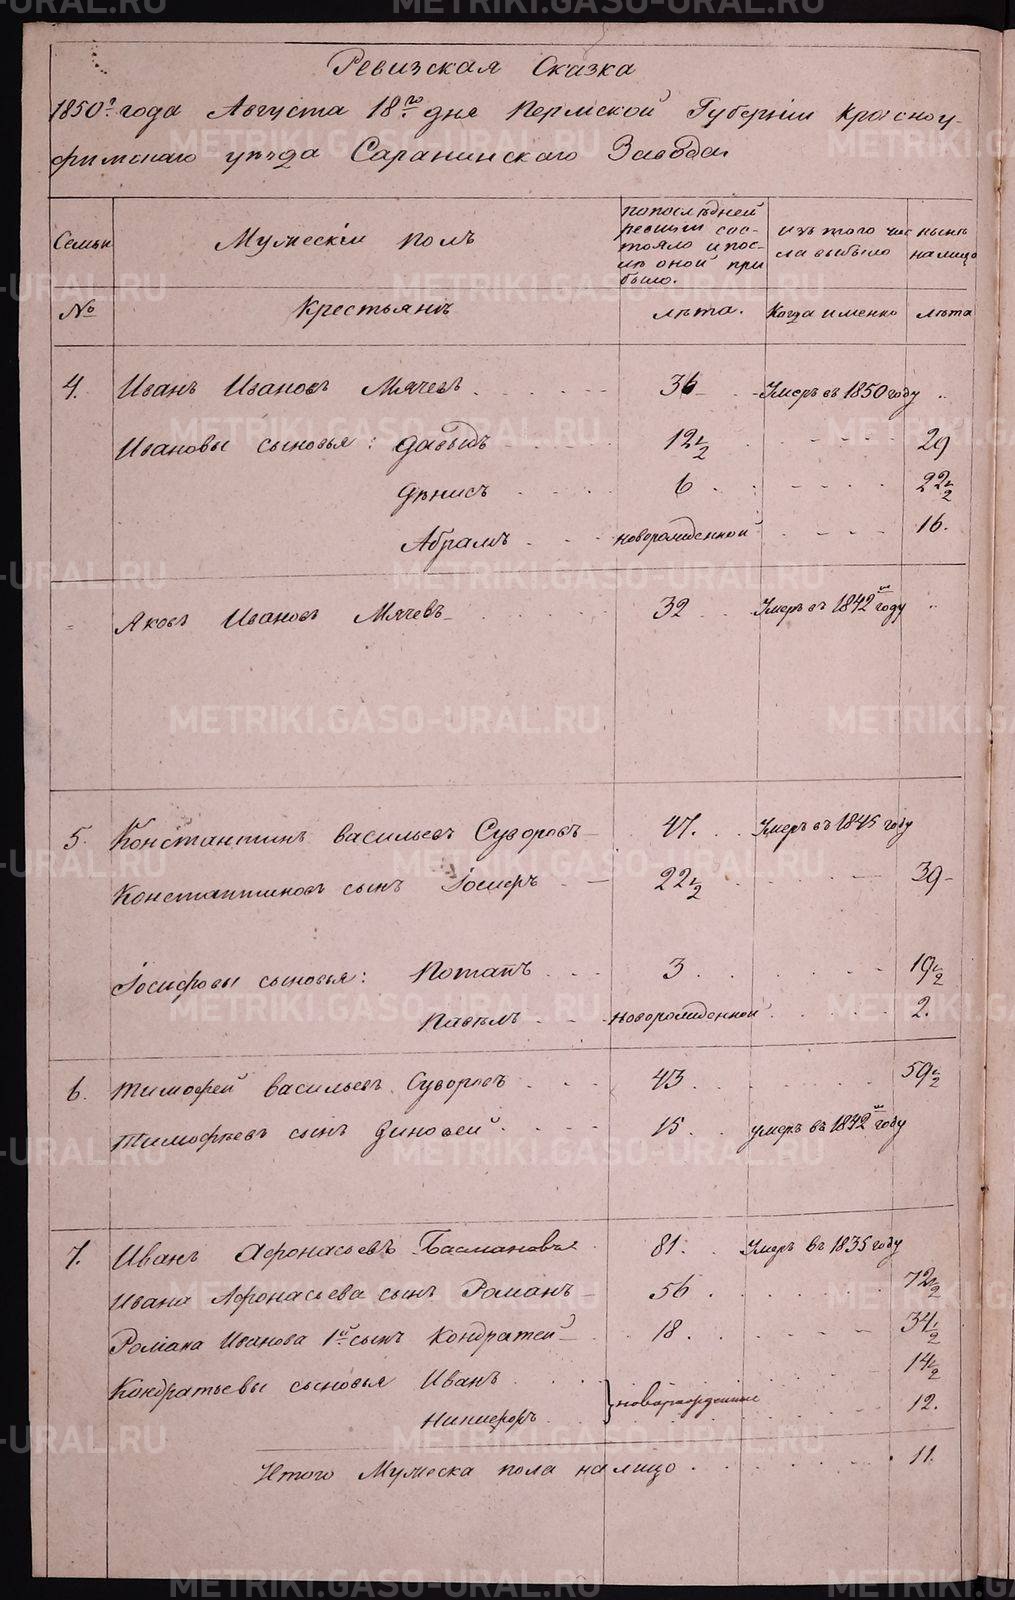 Ревизская Сказка
1850го года Августа 18го дня Пермской Губерніи Красноу-
фимскаго уѣзда Саранинскаго Завода
Семьи
Мужескій полъ
попослѣдней
ревизіи сос-
тояло ипос-
лѣ оной при
было.
изъ того чис
ла выбыло
нынѣ
налицо
№
Крестьянъ
лѣта.
Когда именно
лѣта
4. Иванъ Ивановъ Мячевъ 36 Умеръ въ 1850 году
Ивановы сыновья: Давыдъ 12 1/2 29
Денисъ 6 22 1/2
Абрамъ новорожденной 16.
Яковъ Ивановъ Мячевъ 32 Умеръ въ 1842м году
5. Константинъ Васильевъ Суворовъ 47. Умеръ въ 1845 году
Константиновъ сынъ Іосифъ 22 1/2 39
Іосифовы сыновья: Потапъ 3 19 1/2
Павелъ новорожденной 2.
6. Тимофей Васильевъ Суворовъ 43 59 1/2
Тимофеевъ сынъ Зиновей 15 умеръ въ 1842м году
7. Иванъ Афонасьевъ Басмановъ 81. Умеръ въ 1835 году
Ивана Афонасьева сынъ Романъ 56 72 1/2
Романа Иванова 1й сынъ Кондратей 18 34 1/2
Кондратьевы сыновья Иванъ 14 1/2
Никифоръ новорожденные 12.
Итого Мужеска пола налицо 11.
METRIKI.GASO-URAL.RU